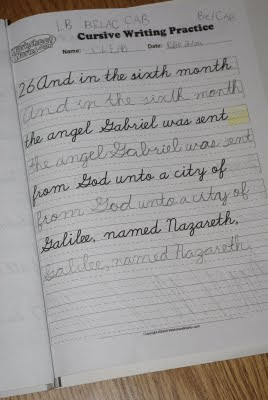 I.B BELAC CAB
Cursive Writing Practice
Name:
Date:
26 And in the sixth month
And in the sixth month
the angel Gabriel was sent
the angel Gabriel was sent
from God unto a city of
from God unto a city of
Galilee, named Nazareth,
Galilee, named Nazareth,